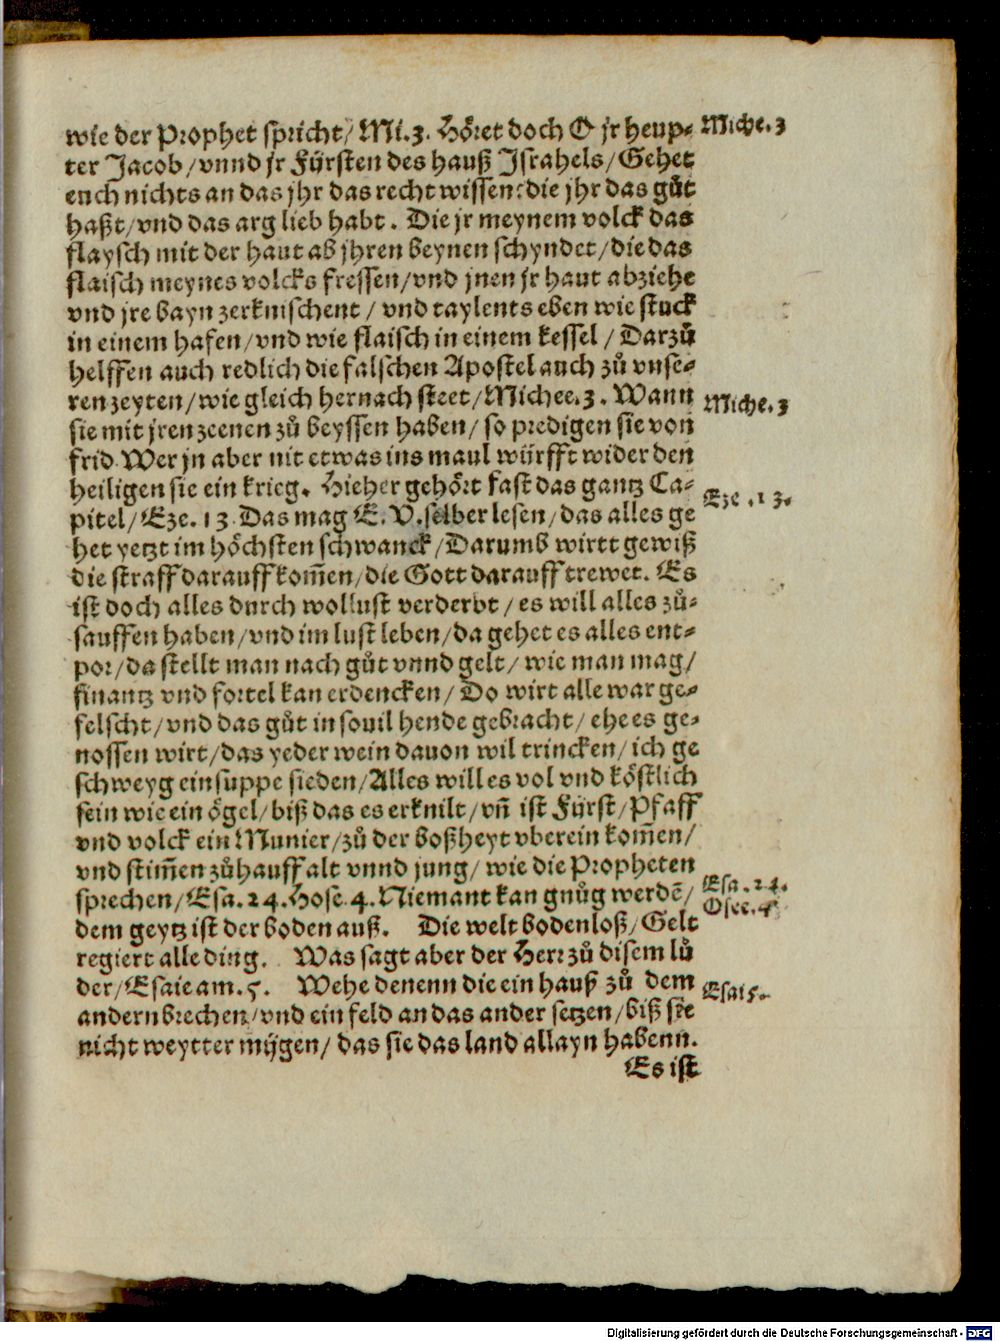 wie der Prophet spricht/ Mi.3. Höret doch O jr heup⸗
Miche.3
ter Jacob/vnnd jr Fürsten des hauß Jsrahels/Gehet
euch nichts an das jhr das recht wissen:die jhr das gůt
haßt/vnd das arg lieb habt. Die jr meynem volck das
flaysch mit der haut ab jhren beynen schyndet/die das
flaisch meynes volcks fressen/vnd jnen jr haut abziehe
vnd jre bayn zerknischent/ vnd taylents eben wie stuck
in einem hafen/vnd wie flaisch in einem kessel/ Darzů
helffen auch redlich die falschen Apostel auch zů vnse⸗
ren zeyten/wie gleich hernach steet/Michee.3. Wann
Miche.3
sie mit jren zeenen zů beyssen haben/ so predigen sie von
frid. Wer jn aber nit etwas ins maul würfft wider den
heiligen sie ein krieg. Hieher gehört fast das gantz Ca⸗
Eze.13.
pitel/ Eze.13. Das mag E.V.selber lesen/das alles ge
het yetzt im höchsten schwanck/Darumb wirtt gewiß
die straff darauff kom̃en/die Gott darauff trewet. Es
ist doch alles durch wollust verderbt/ es will alles zů⸗
sauffen haben/vnd im lust leben/da gehet es alles ent⸗
por/da stellt man nach gůt vnnd gelt/ wie man mag/
finantz vnd fortel kan erdencken/ Do wirt alle war ge⸗
felscht/vnd das gůt in souil hende gebracht/ ehe es ge⸗
nossen wirt/das yeder wein dauon wil trincken/ich ge
schweyg ein suppe sieden/Alles will es vol vnd köstlich
sein wie ein ögel/biß das es erknilt/vñ ist Fürst/Pfaff
vnd volck ein Munier/zů der boßheyt vberein kom̃en/
vnd stim̃en zůhauff alt vnnd jung/ wie die Propheten
sprechen/ Esa.24.Hose.4. Niemant kan gnůg werdẽ/
Esa.24.
Osee.4
dem geytz ist der boden auß. Die welt bodenloß/Gelt
regiert alle ding. Was sagt aber der Herr zů disem lů
der/Esaie am.5. Wehe denenn die ein hauß zů dem
Esai5.
andern brechen/vnd ein feld an das ander setzen/biß sie
nicht weytter mügen/ das sie das land allayn habenn.
Es ist
Digitalisierung gefördert durch die Deutsche Forschungsgemeinschaft - DFG